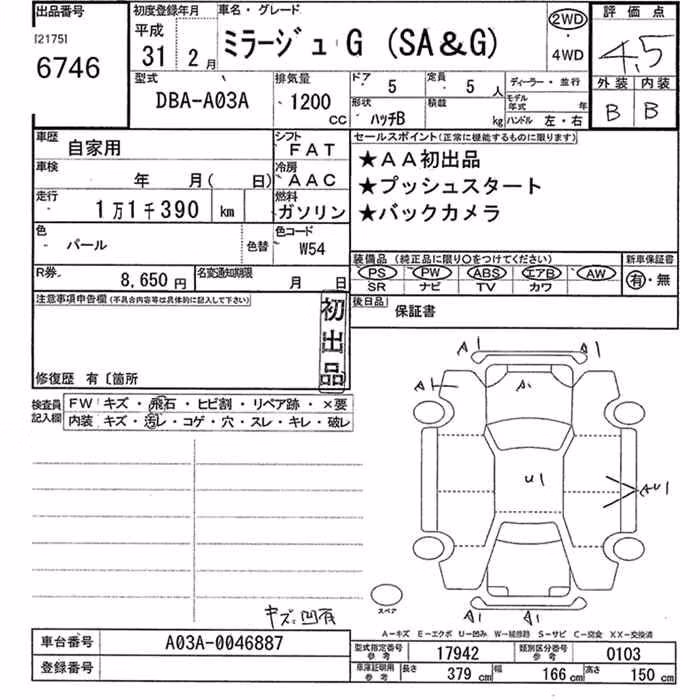 出品番号
[2175]
6746
初度登録年月
平成
31 2月
車名・グレード
ミラージュ G (SA&G)
2WD
4WD
評価点
4.5
外装 内装
B B
型式
DBA-A03A
排気量
1200
cc
ドア 5
定員 5 人
形状 ハッチB
積載 kg
ディーラー・並行
モデル年式 年
ハンドル 左・右
車歴 自家用
シフト FAT
車検 年 月( 日)
冷房 AAC
走行 1万1千390 km
燃料 ガソリン
色 パール
色替
色コード W54
R券 8,650円
名変通知期限 月 日
セールスポイント(正常に機能するものに限ります)
★AA初出品
★プッシュスタート
★バックカメラ
装備品 (純正品に限り○をつけてください)
PS PW ABS エアB AW
SR ナビ TV カワ
新車保証書
有・無
後日品 保証書
注意事項申告欄(不具合内容等は具体的に記入して下さい)
初出品
修復歴 有〔箇所
検査員記入欄
FW キズ・飛石・ヒビ割・リペア跡・×要
内装 キズ・汚レ・コゲ・穴・スレ・キレ・破レ
A1 A1
A1 A1
U1
AU1
A1 A1
スペア
キズ凹有
A-キズ E-エクボ U-凹み W-補修跡 S-サビ C-腐食 XX-交換済
車台番号 A03A-0046887
登録番号
型式指定番号参考 17942
類別区分番号参考 0103
車庫証明用参考 長さ 379cm 幅 166cm 高さ 150cm